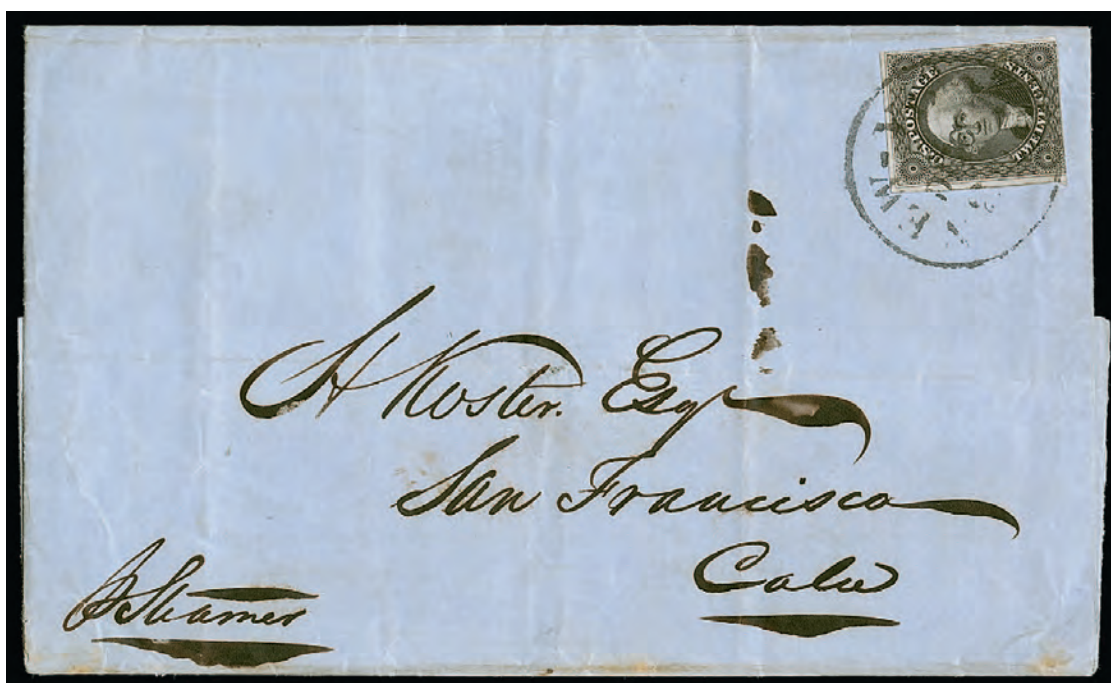 U.S. POSTAGE
TWELVE CENTS
NEW-Y
H Koster. Esq
San Francisco
Cala
P Steamer